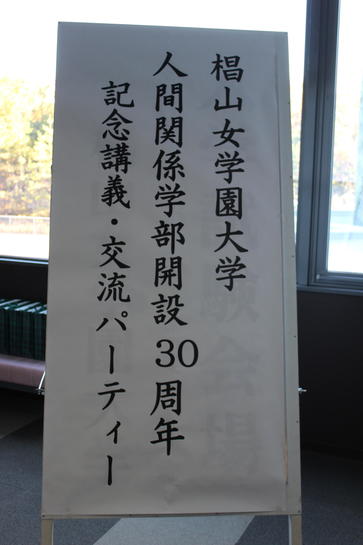 椙山女学園大学
人間関係学部開設30周年
記念講義・交流パーティー